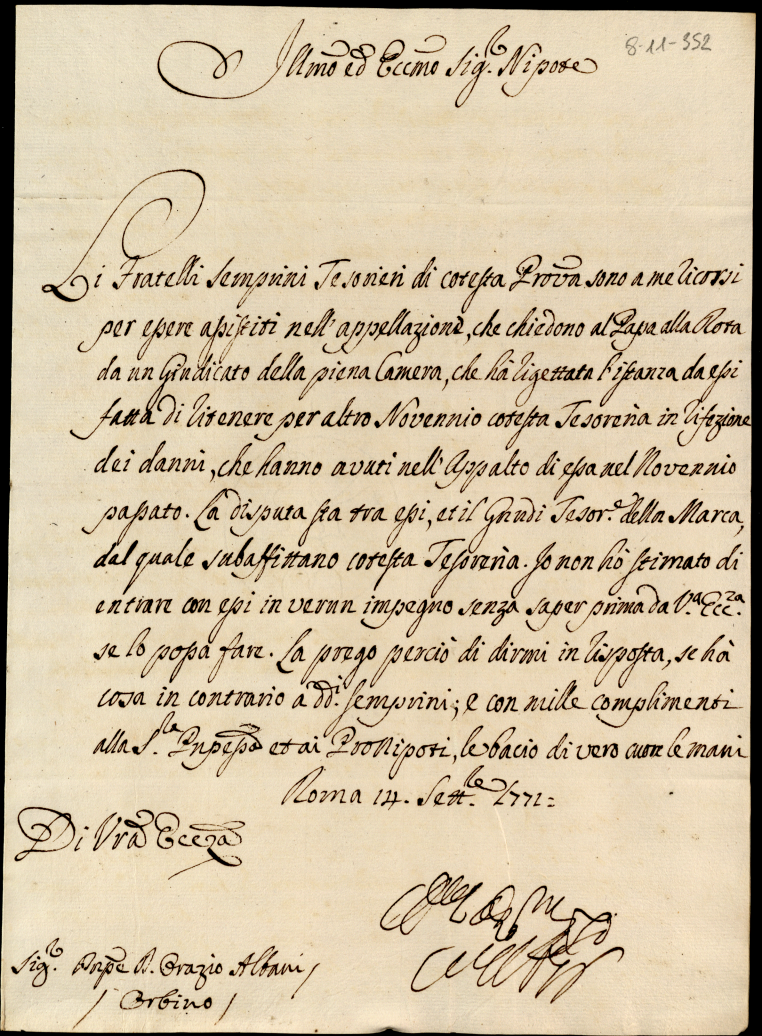 8-11-352
Illmo ed Eccmo Sigr. Nipote
Li Fratelli Semprini Tesorieri di cotesta Prova sono a me ricorsi
per essere assistiti nell'appellazione, che chiedono al Papa alla Rota
da un Giudicato della piena Camera, che hà rigettata l'istanza da essi
fatta di ritenere per altro Novennio cotesta Tesoreria in rifezione
dei danni, che hanno avuti nell'Appalto di essa nel Novennio
passato. La disputa sta tra essi, et il Giudi Tesore. della Marca,
dal quale subaffittano cotesta Tesoreria. Io non hò stimato di
entrare con essi in verun impegno senza saper prima da Va. Eccza.
se lo possa fare. La prego perciò di dirmi in risposta, se hà
cosa in contrario à ddi. Semprini; e con mille complimenti
alla Sra. Pnpessa et ai ProNipoti, le bacio di vero cuore le mani
Roma 14. Settbre. 1771=
Di Vra Eccza
Sigr. Pnpe D. Orazio Albani /
/ Orbino /